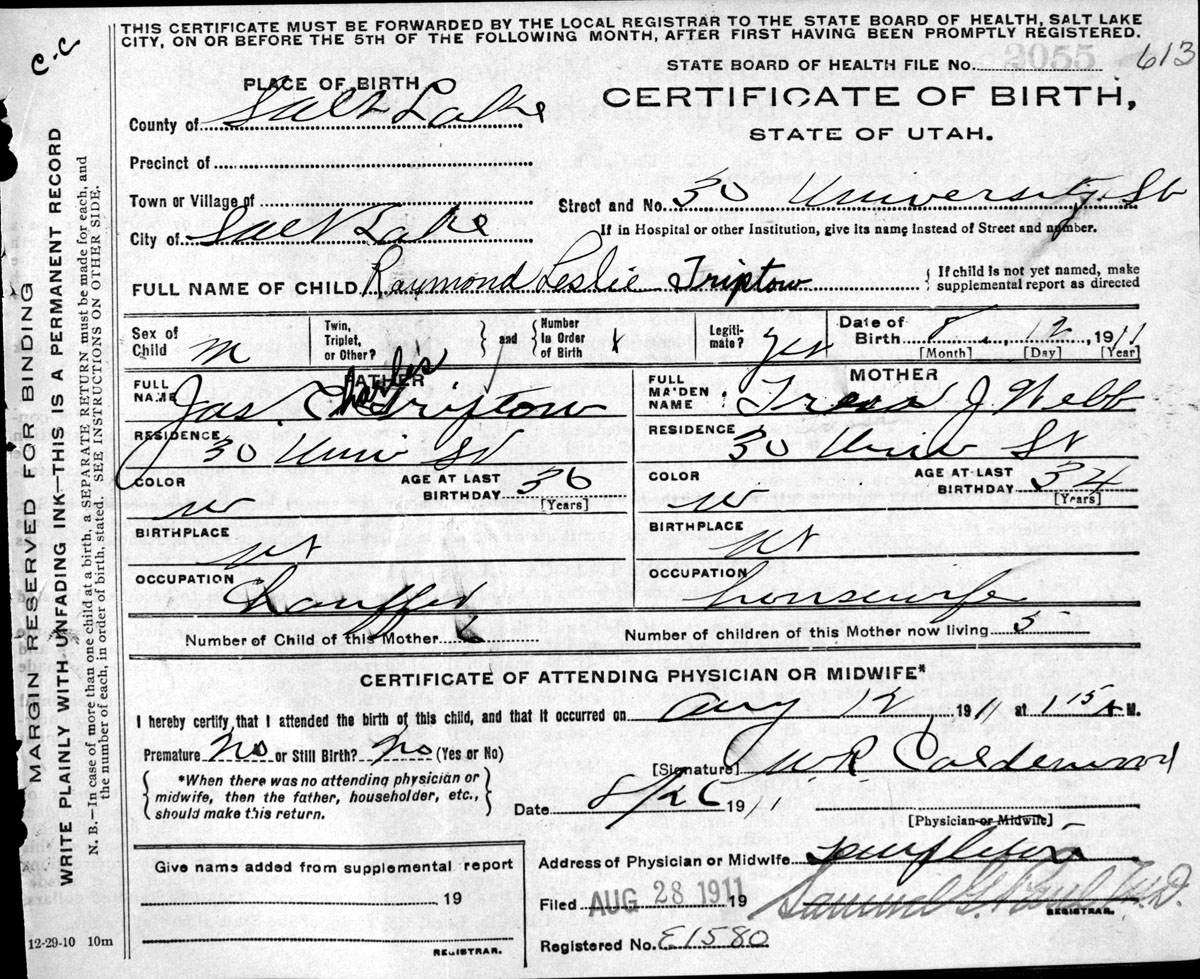 THIS CERTIFICATE MUST BE FORWARDED BY THE LOCAL REGISTRAR TO THE STATE BOARD OF HEALTH, SALT LAKE
CITY, ON OR BEFORE THE 5TH OF THE FOLLOWING MONTH, AFTER FIRST HAVING BEEN PROMPTLY REGISTERED.
C-C
STATE BOARD OF HEALTH FILE No. 2055 613
PLACE OF BIRTH
CERTIFICATE OF BIRTH,
STATE OF UTAH.
County of Salt Lake
Precinct of
Town or Village of
Street and No. 30 University St
City of Salt Lake
If in Hospital or other Institution, give its name instead of Street and number.
FULL NAME OF CHILD Raymond Leslie Triptow
If child is not yet named, make
supplemental report as directed
Sex of Child m
Twin, Triplet, or Other?
and
Number in Order of Birth 1
Legitimate? yes
Date of Birth 8 12, 1911
[Month] [Day] [Year]
FATHER
FULL NAME Jas. Charles Triptow
RESIDENCE 30 Univ St
COLOR w
AGE AT LAST BIRTHDAY 36
[Years]
BIRTHPLACE Ut
OCCUPATION Chauffer
MOTHER
FULL MAIDEN NAME J. Webb
RESIDENCE 30 Univ St
COLOR w
AGE AT LAST BIRTHDAY 34
[Years]
BIRTHPLACE Ut
OCCUPATION housewife
Number of Child of this Mother
Number of children of this Mother now living 5
CERTIFICATE OF ATTENDING PHYSICIAN OR MIDWIFE*
I hereby certify, that I attended the birth of this child, and that it occurred on Aug 12, 1911 at 1 15 A M.
Premature No or Still Birth? No (Yes or No)
*When there was no attending physician or
midwife, then the father, householder, etc.,
should make this return.
[Signature] W R Calderwood
Date 8/26 1911
[Physician or Midwife]
Address of Physician or Midwife Templeton
Give name added from supplemental report
19
REGISTRAR.
Filed AUG 28 1911 19
Samuel G. Paul M.D.
REGISTRAR.
Registered No. E1580
12-29-10 10m
MARGIN RESERVED FOR BINDING
WRITE PLAINLY WITH UNFADING INK—THIS IS A PERMANENT RECORD
N. B.—In case of more than one child at a birth, a SEPARATE RETURN must be made for each, and
the number of each, in order of birth, stated. SEE INSTRUCTIONS ON OTHER SIDE.